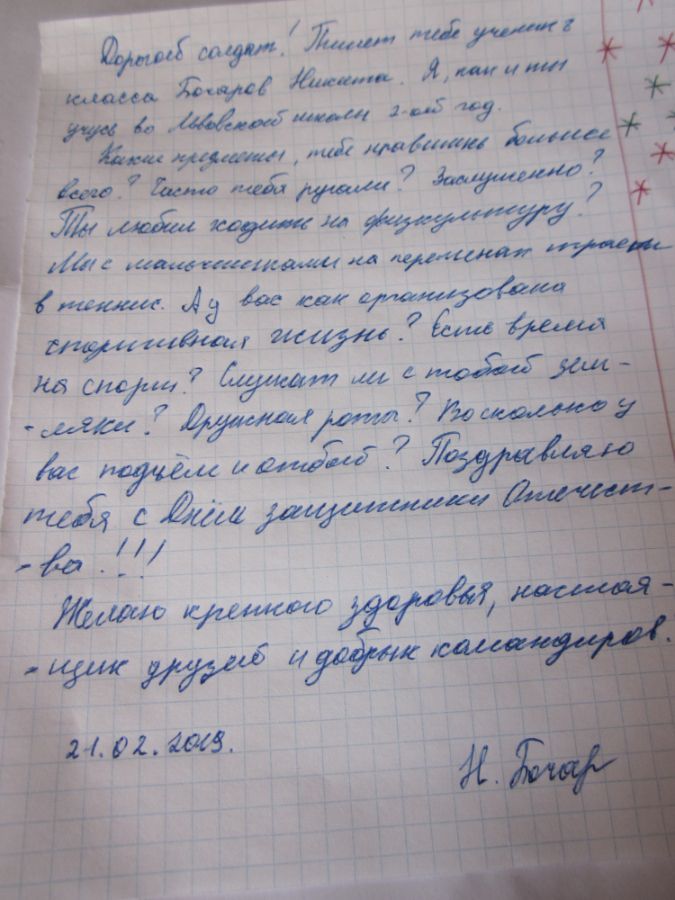 Дорогой солдат! Пишет тебе ученик 7
класса Бочаров Никита. Я, как и ты
учусь во Львовской школы 2-ой год.
Какие предметы, тебе нравились больше
всего? Часто тебя ругали? Заслуженно?
Ты любил ходить на физкультуру?
Мы с мальчишками на переменах играем
в теннис. А у вас как организована
спортивная жизнь? Есть время
на спорт? Служат ли с тобой зем-
-ляки? Дружная роты? Во сколько у
вас подъём и отбой? Поздравляю
тебя с Днём защитники Отечест-
-ва!!!
Желаю крепкого здоровья, настоя-
-щих друзей и добрых командиров.
21.02.2019.
Н. Бочар